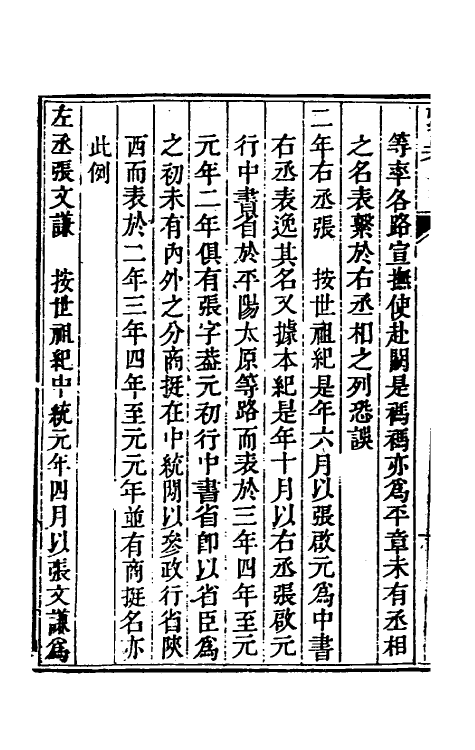 等率各路宣撫使赴闕是禡禡亦爲平章未有丞相
之名表繫於右丞相之列恐誤
二年右丞張　按世祖紀是年六月以張啟元爲中書
右丞表逸其名又據本紀是年十月以右丞張啟元
行中書省於平陽太原等路而表於三年四年至元
元年二年俱有張字葢元初行中書省卽以省臣爲
之初未有內外之分商挺在中統閒以參政行省陝
西而表於二年三年四年至元元年並有商挺名亦
此例
左丞張文謙　按世祖紀中統元年四月以張文謙爲